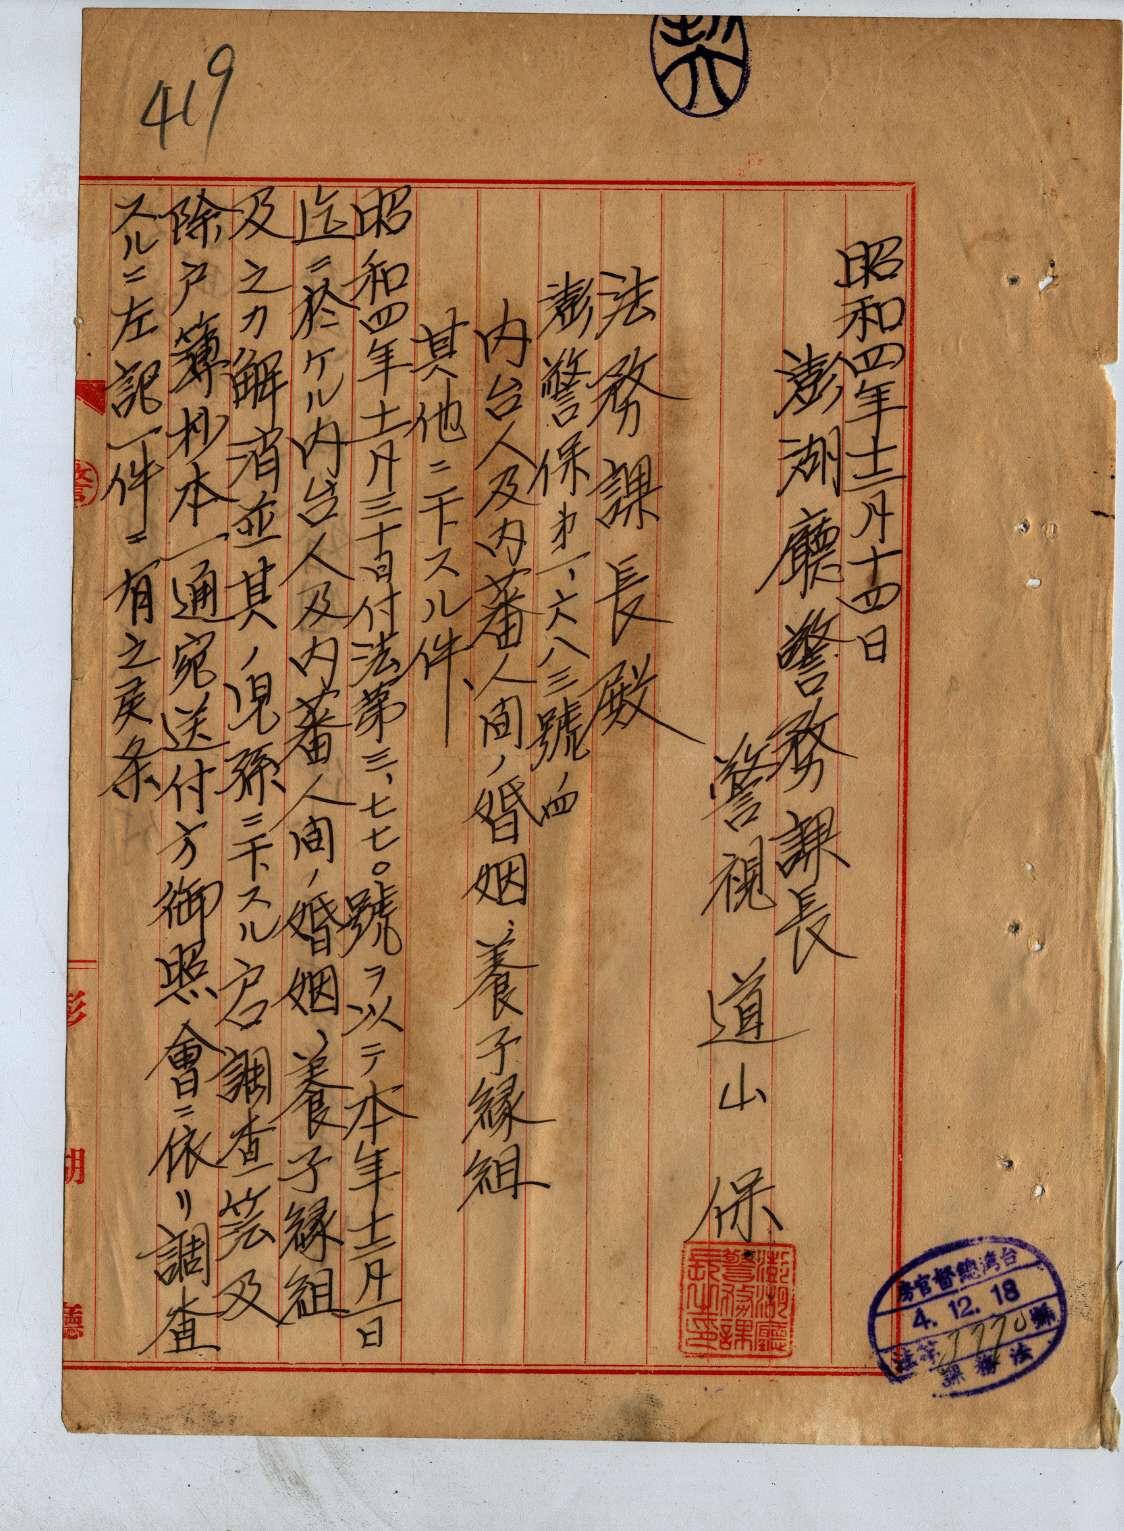 419
契
昭和四年十二月十四日
澎湖廳警務課長
警視 道山 保
澎湖廳警務課長之印
法務課長殿
澎警保第一、六八三號ノ四
内台人及内蕃人間ノ婚姻、養子縁組
其他ニ干スル件
昭和四年十一月三十日付法第三、七七〇號ヲ以テ本年十二月一日
迄ニ於ケル内台人及内蕃人間ノ婚姻、養子縁組
及之カ解消並其ノ児孫ニ干スル戸口調査簿及
除戸簿抄本一通宛送付方御照會ニ依リ調査
スルニ左記一件ニ有之候条
台湾總督官房
4.12.18
法 第3770號
法務課
澎湖廳